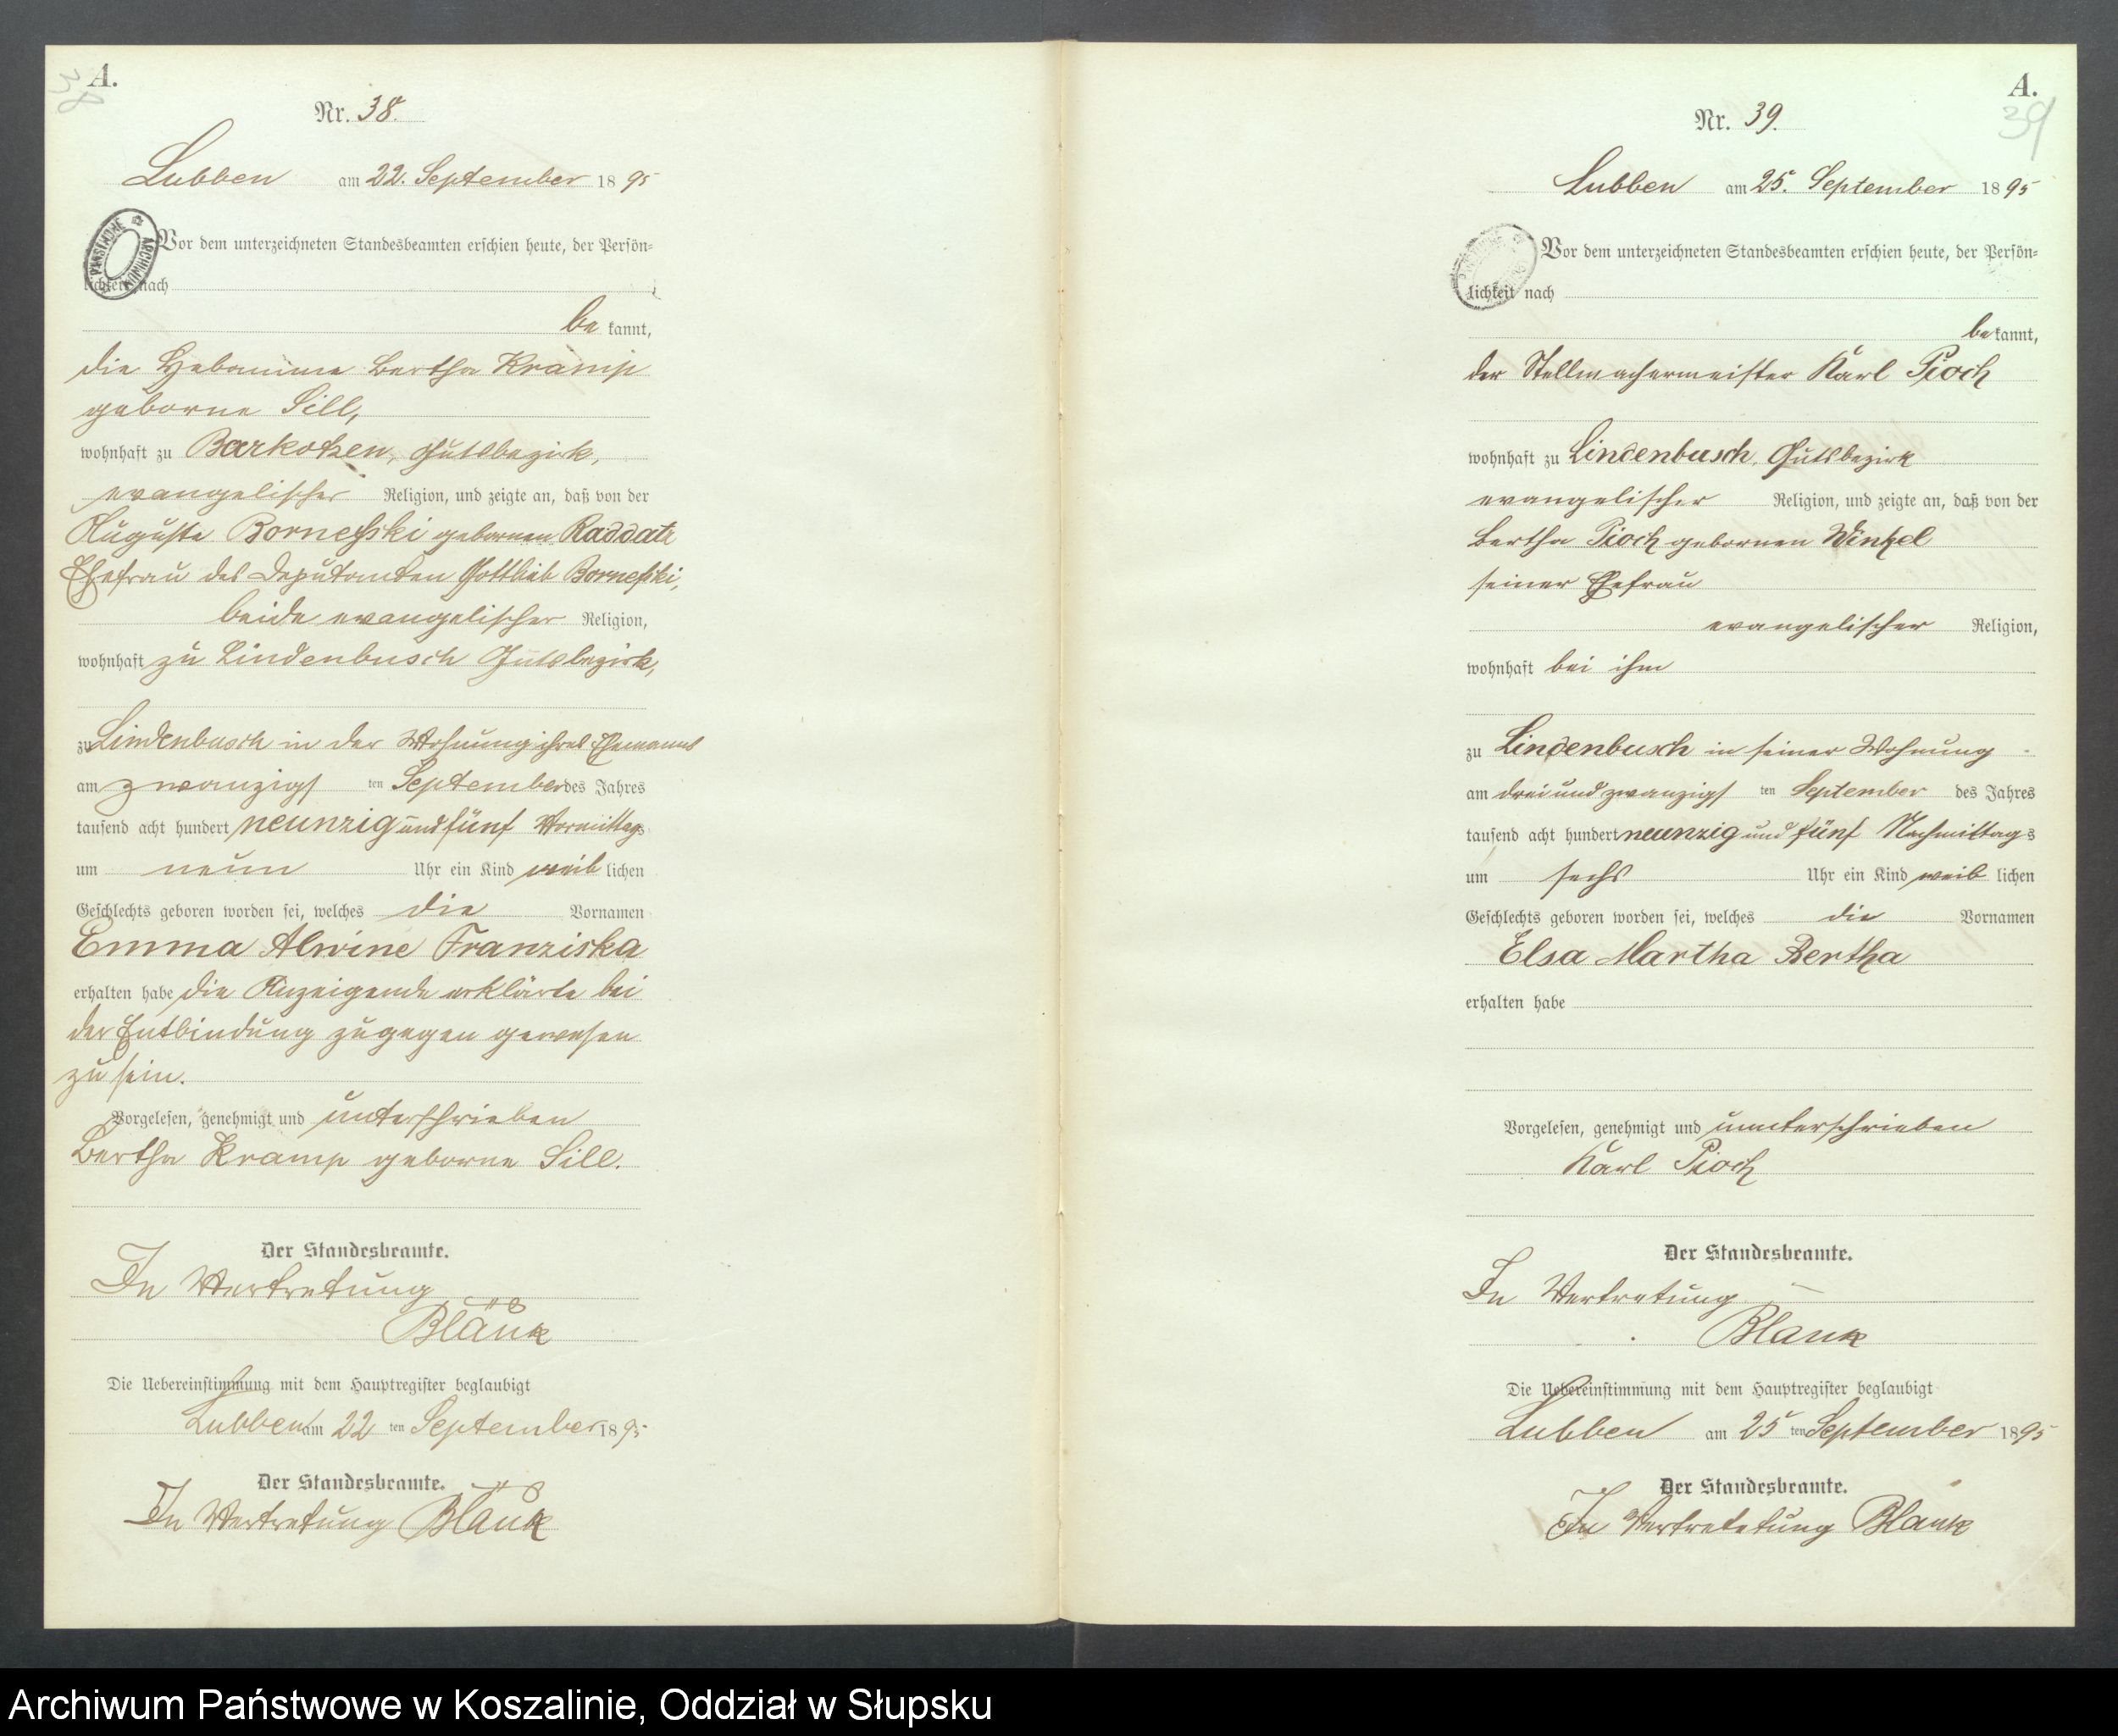 A.
38
Nr. 38.
Lubben am 22. September 1895
Vor dem unterzeichneten Standesbeamten erschien heute, der Persön-
lichkeit nach
be kannt,
die Hebamme Bertha Kramp
geborne Sill,
wohnhaft zu Barkotzen, Gutsbezirk,
evangelischer Religion, und zeigte an, daß von der
Auguste Borneffski gebornen Raddatz
Ehefrau des Deputanten Gottlieb Borneffski,
beide evangelischer Religion,
wohnhaft zu Lindenbusch Gutsbezirk,
zu Lindenbusch in der Wohnung ihres Ehemanns
am zwanzigsten September des Jahres
tausend acht hundert neunzig und fünf Vormittags
um neun Uhr ein Kind weiblichen
Geschlechts geboren worden sei, welches die Vornamen
Emma Alwine Franziska
erhalten habe die Anzeigende erklärte bei
der Entbindung zugegen gewesen
zu sein.
Vorgelesen, genehmigt und unterschrieben
Bertha Kramp geborne Sill.
Der Standesbeamte.
In Vertretung
Blank
Die Uebereinstimmung mit dem Hauptregister beglaubigt
Lubben am 22 ten September 1895
Der Standesbeamte.
In Vertretung Blank
A.
39
Nr. 39.
Lubben am 25. September 1895
Vor dem unterzeichneten Standesbeamten erschien heute, der Persön-
lichkeit nach
be kannt,
der Stellmachermeister Karl Pioch
wohnhaft zu Lindenbusch, Gutsbezirk
evangelischer Religion, und zeigte an, daß von der
Bertha Pioch gebornen Winkel
seiner Ehefrau
evangelischer Religion,
wohnhaft bei ihm
zu Lindenbusch in seiner Wohnung
am drei und zwanzigsten September des Jahres
tausend acht hundert neunzig und fünf Nachmittags
um sechs Uhr ein Kind weiblichen
Geschlechts geboren worden sei, welches die Vornamen
Elsa Martha Bertha
erhalten habe
Vorgelesen, genehmigt und unterschrieben
Karl Pioch
Der Standesbeamte.
In Vertretung
Blank
Die Uebereinstimmung mit dem Hauptregister beglaubigt
Lubben am 25 ten September 1895
Der Standesbeamte.
In Vertretetung Blank
Archiwum Państwowe w Koszalinie, Oddział w Słupsku